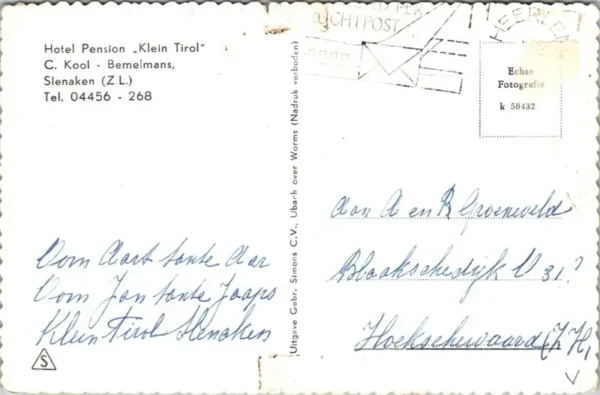 Hotel Pension „Klein Tirol"
C. Kool - Bemelmans,
Slenaken (Z L.)
Tel. 04456 - 268
Oom Aart tante Aar
Oom Jan tante Jaaps
Klein Tirol Slenaken
S
Uitgave Gebr. Simons C.V., Ubach over Worms (Nadruk verboden)
PER
LUCHTPOST
HEERLEN
Echte
Fotografie
k 58432
Aan A en B Groeneveld
Blaakschedijk W 31?
Hoekschewaard (Z H,